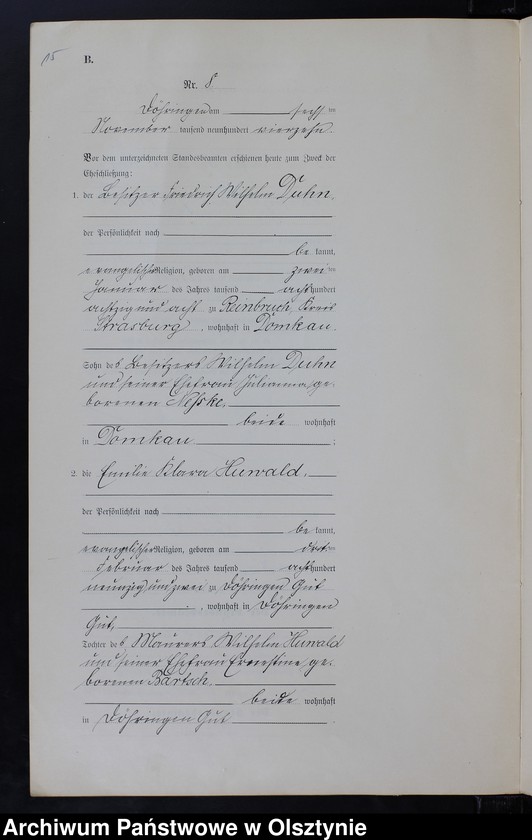 15
B.
Nr. 8
Döhringen am sechs ten
November tausend neunhundert vierzehn.
Vor dem unterzeichneten Standesbeamten erschienen heute zum Zweck der
Eheschließung:
1. der Besitzer Friedrich Wilhelm Duhn,
der Persönlichkeit nach
be kannt,
evangelischer Religion, geboren am zwei ten
Januar des Jahres tausend acht hundert
achtzig und acht zu Reinbruch, Kreis
Strasburg, wohnhaft in Domkau.
Sohn des Besitzers Wilhelm Duhn
und seiner Ehefrau Julianna, ge-
borenen Neske,
beide wohnhaft
in Domkau ;
2. die Emilie Klara Huwald,
der Persönlichkeit nach
be kannt,
evangelischer Religion, geboren am
Februar des Jahres tausend acht hundert
neunzig und zwei zu Döhringen Gut
, wohnhaft in Döhringen
Gut,
Tochter des Maurers Wilhelm Huwald
und seiner Ehefrau Ernestine, ge-
borenen Bartsch,
beide wohnhaft
in Döhringen Gut .
Archiwum Państwowe w Olsztynie